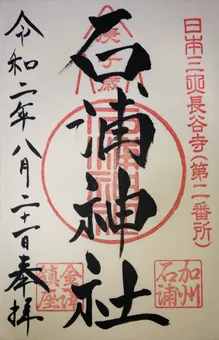 日本三所長谷寺(第二番所)
石浦神社
加州
石浦
金沢
鎮座
令和二年八月二十一日奉拝